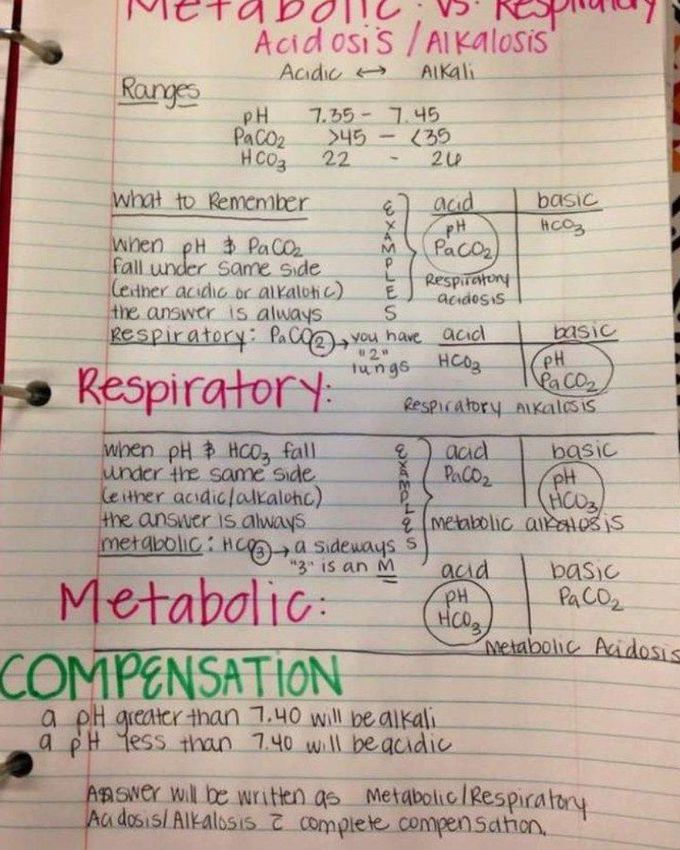 Metabolic vs. Respiratory
Acidosis / Alkalosis
Acidic ↔ Alkali
Ranges
pH 7.35 - 7.45
PaCO2 >45 - <35
HCO3 22 - 26
What to Remember
when pH & PaCO2
fall under same side
(either acidic or alkalotic)
the answer is always
Respiratory: PaCO2 → you have
"2"
lungs
EXAMPLES
acid basic
pH HCO3
PaCO2
Respiratory
acidosis
acid basic
HCO3 pH
PaCO2
Respiratory Alkalosis
Respiratory:
when pH & HCO3 fall
under the same side
(either acidic/alkalotic)
the answer is always
metabolic: HCO3 → a sideways
"3" is an M
EXAMPLES
acid basic
PaCO2 pH
HCO3
metabolic alkalosis
acid basic
pH PaCO2
HCO3
Metabolic Acidosis
Metabolic:
COMPENSATION
a pH greater than 7.40 will be alkali
a pH less than 7.40 will be acidic
Answer will be written as Metabolic/Respiratory
Acidosis/Alkalosis c̄ complete compensation.